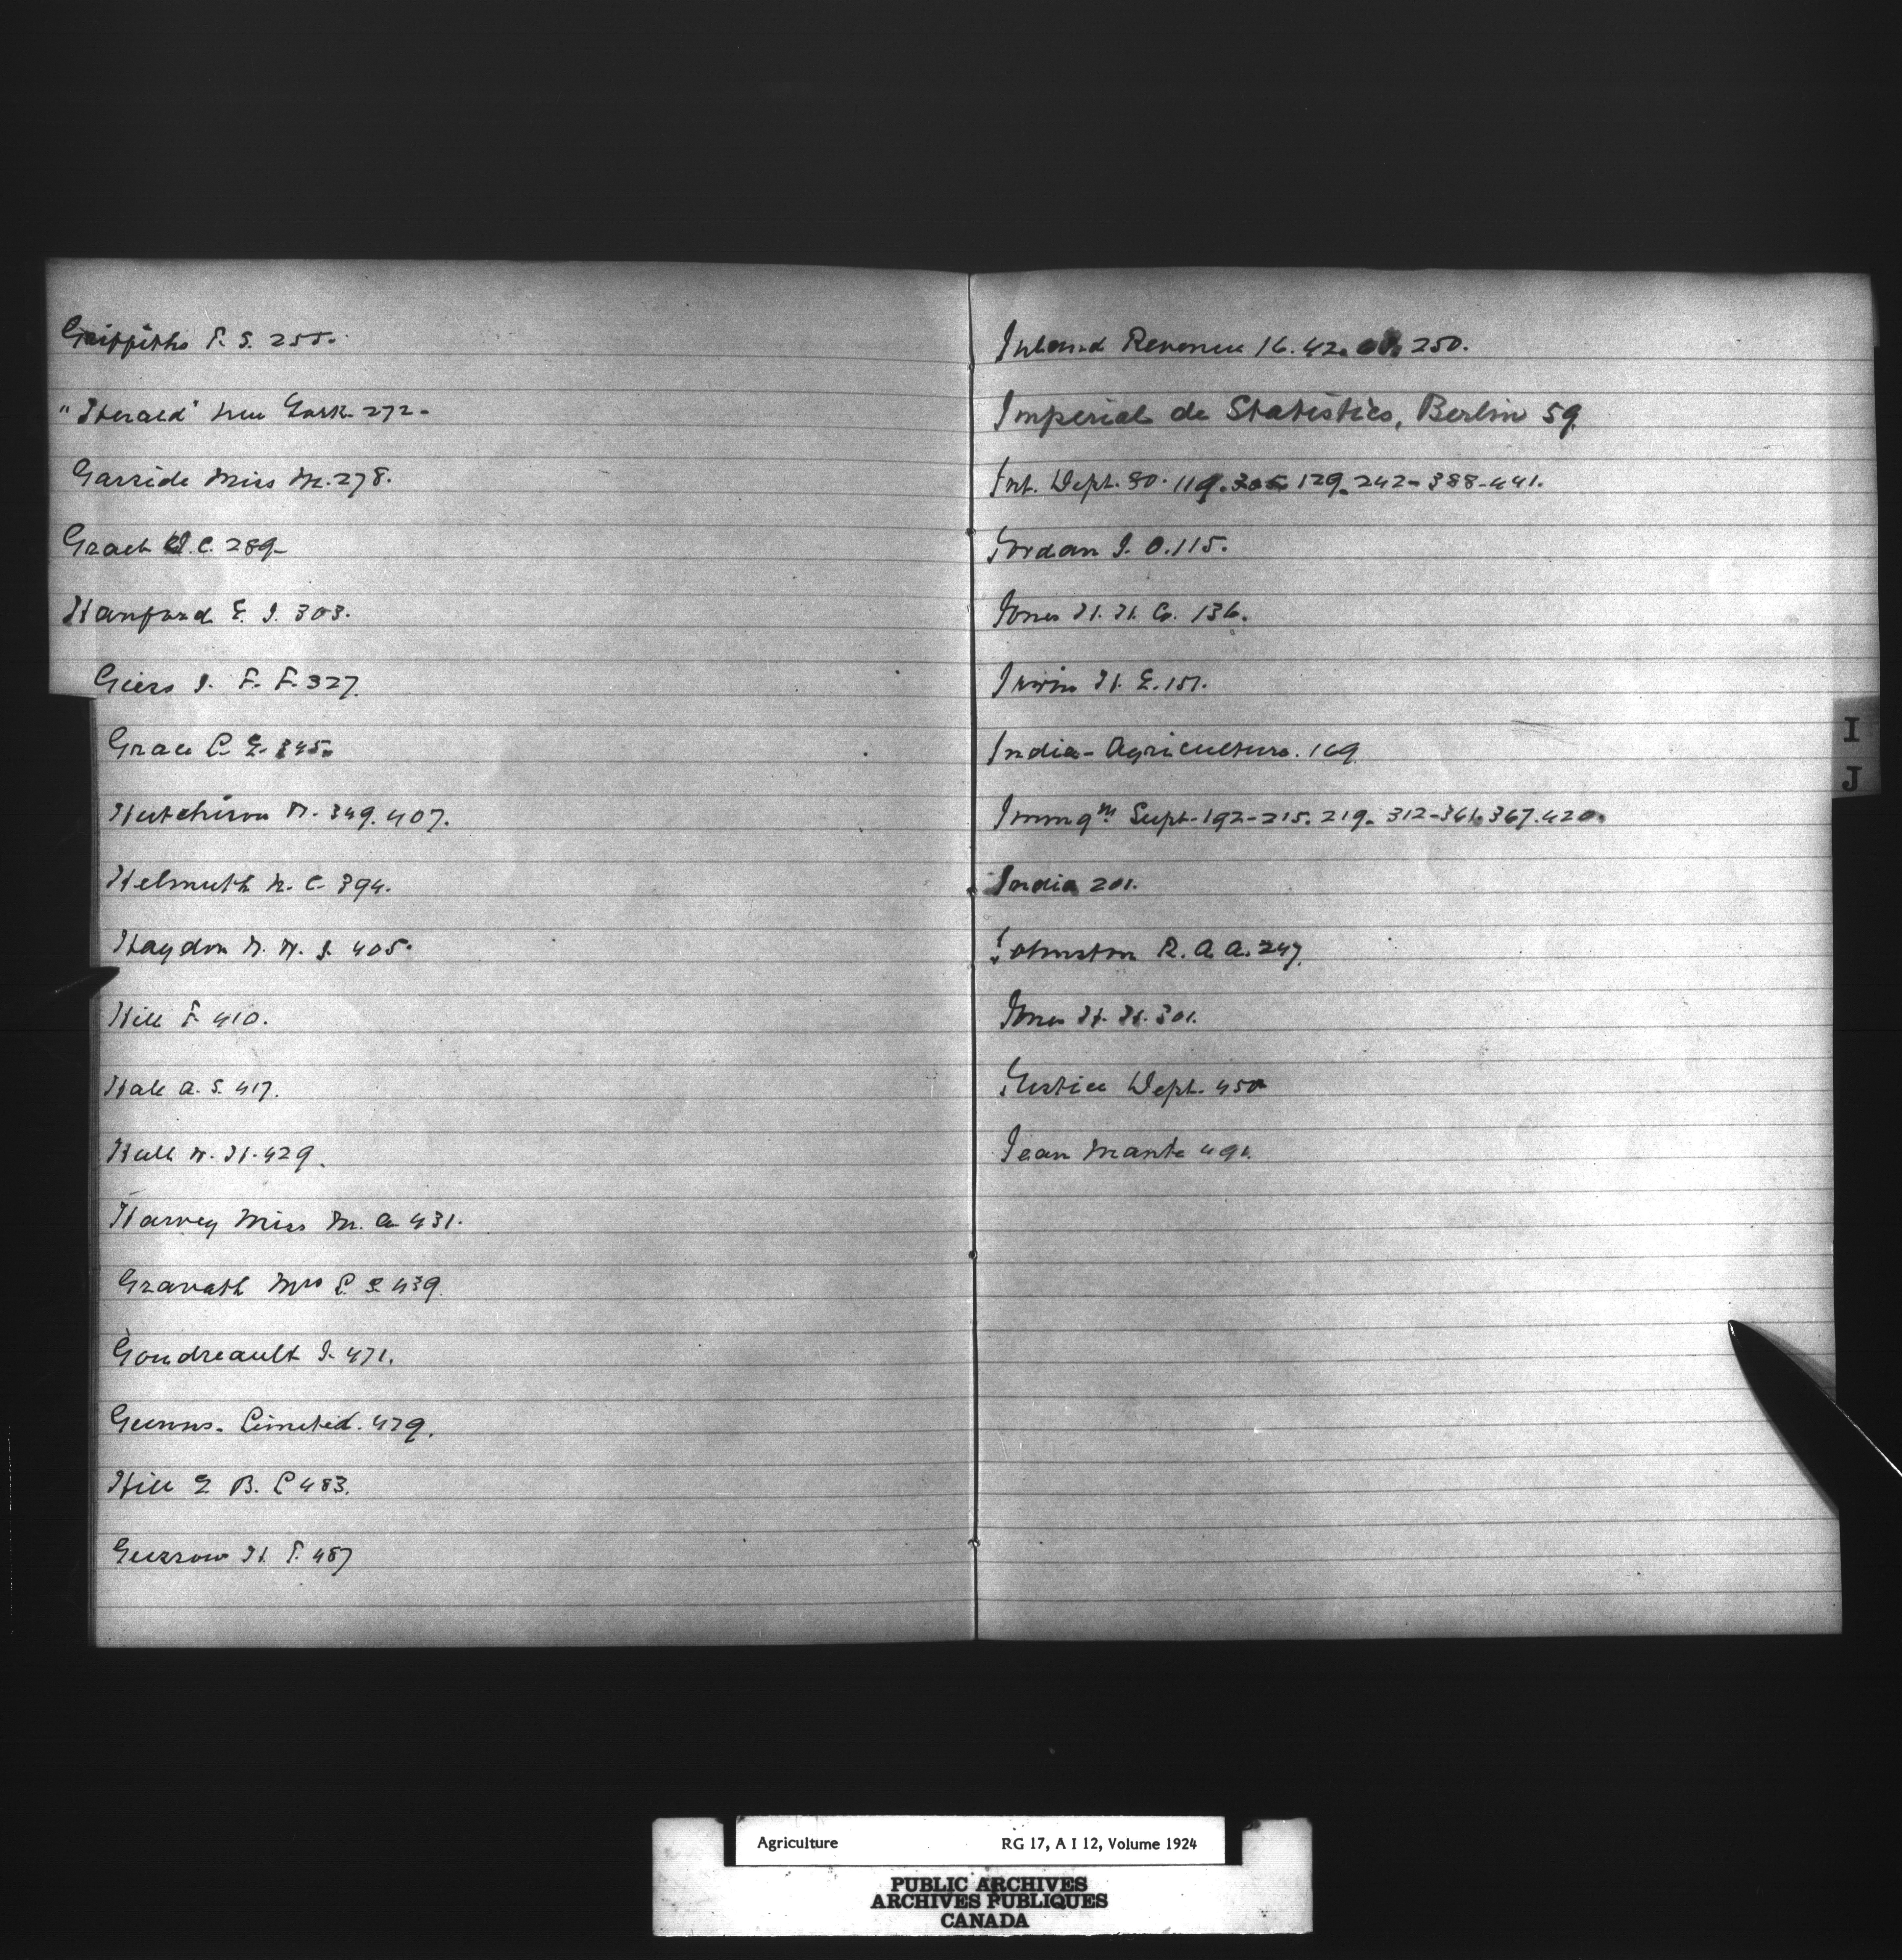 Griffiths F. S. 255.
"Herald" New York 272-
Garside Miss M. 278.
Grach W. C. 289-
Hanford E. J. 303.
Giers J. F. F. 327.
Grace C. E. 345.
Hutchison W. 349. 407.
Helmuth N. C. 394.
Haydon W. W. J. 405.
Hill F. 410.
Hale A. S. 417.
Hull W. H. 429.
Harvey Miss M. A. 431.
Gravath Mrs C. S. 439.
Goudreault J. 471.
Gunns. Limited. 479.
Hill E B. C 483.
Gurrow H. F. 487
Inland Revenue 16. 42. 250.
Imperial de Statistics, Berlin 59
Int. Dept. 80. 119. 305 129. 242- 388-441.
Jordan J. O. 115.
Jones H. H. G. 136.
Irwin H. E. 151.
India - Agriculture. 169
Immgn Supt. 192-215. 219. 312-361. 367. 420.
India 201.
Johnston R. A. A. 247.
Jones H. H. 301.
Justice Dept. 450
Jean Mante 491.
I
J
Agriculture RG 17, A I 12, Volume 1924
PUBLIC ARCHIVES
ARCHIVES PUBLIQUES
CANADA